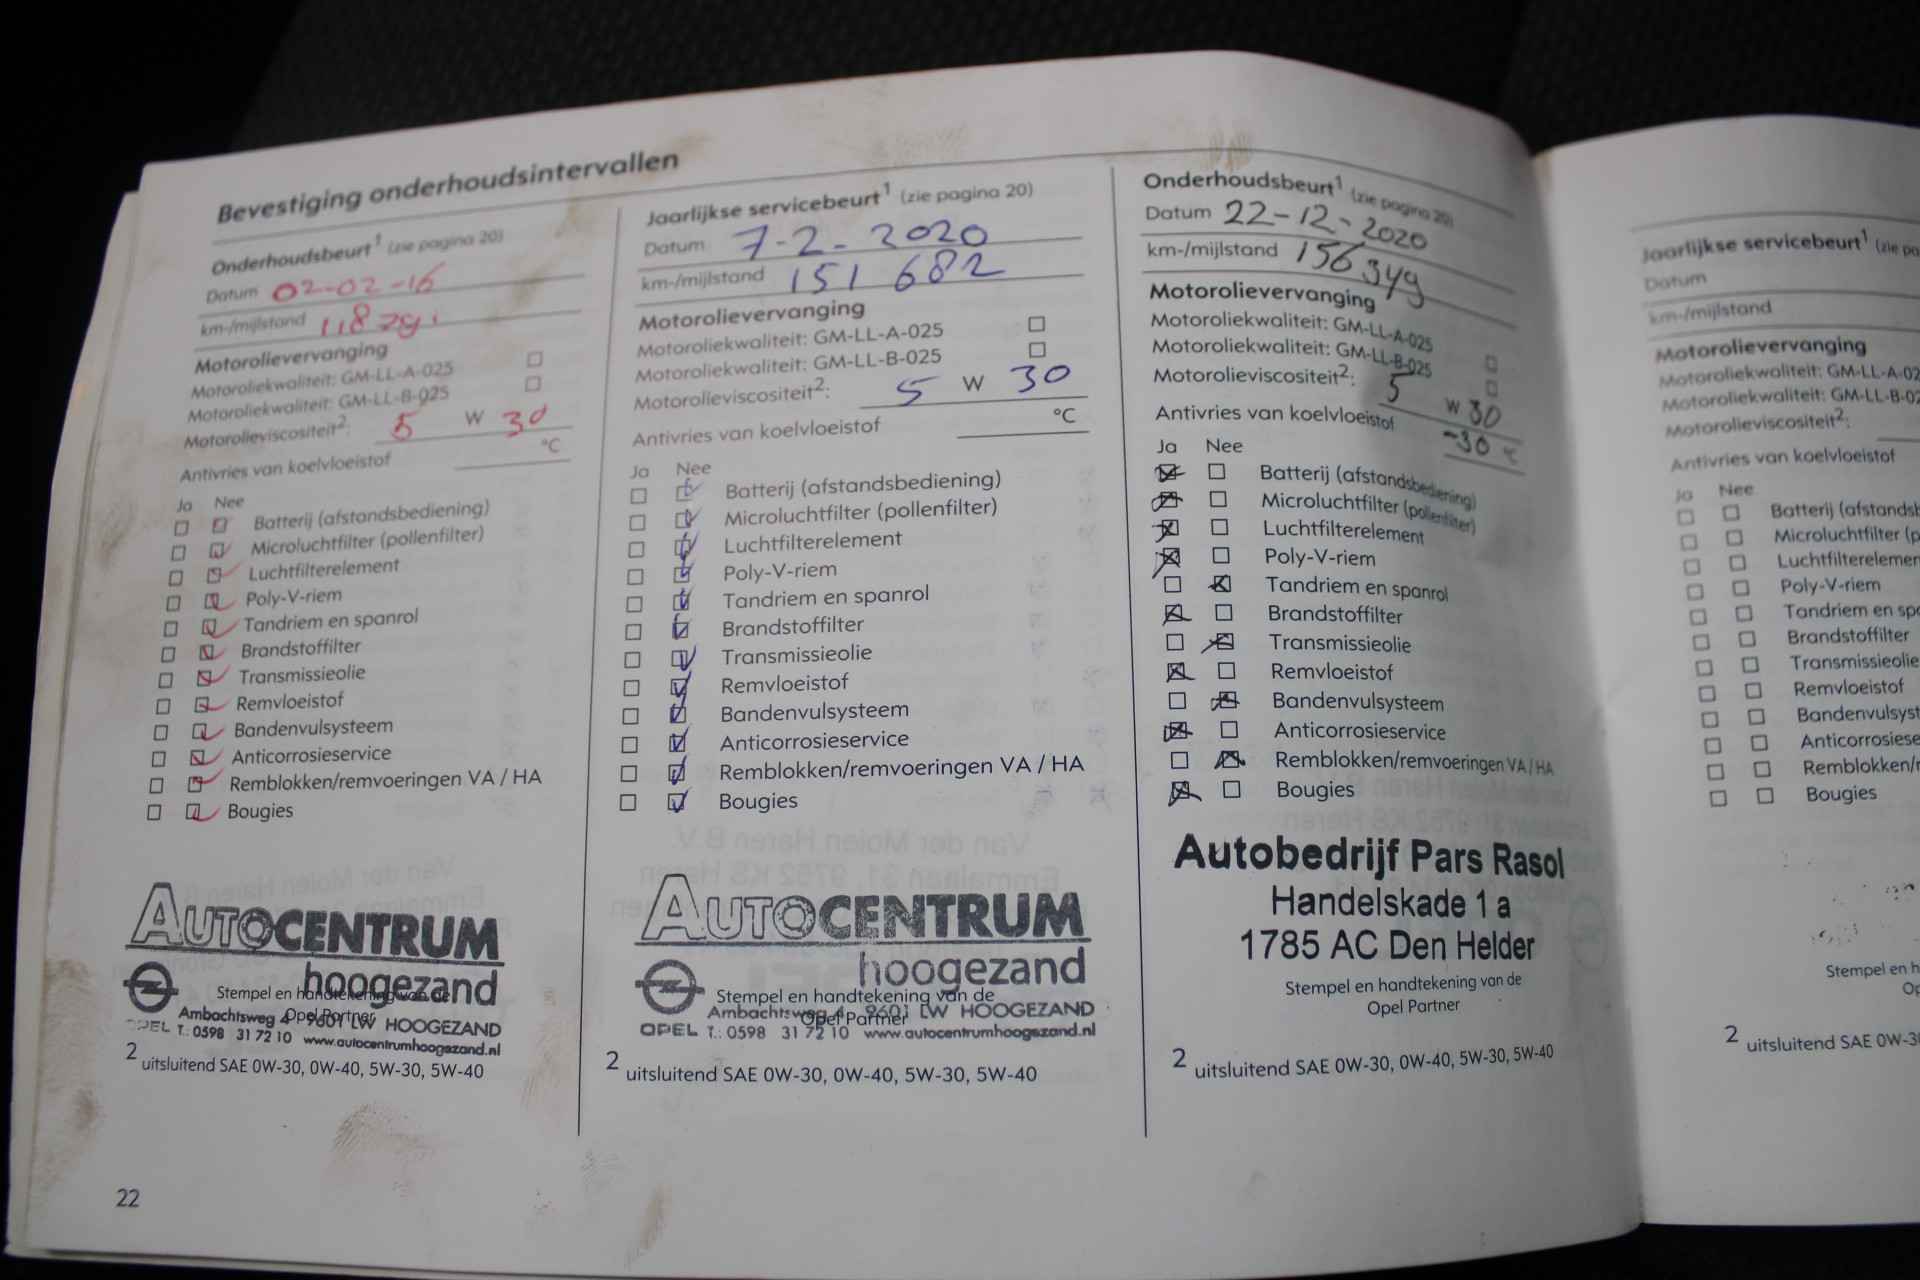 Bevestiging onderhoudsintervallen
Onderhoudsbeurt¹ (zie pagina 20)
Datum 02-02-16
km-/mijlstand
Motorolievervanging
Motoroliekwaliteit: GM-LL-A-025
Motoroliekwaliteit: GM-LL-B-025
Motorolieviscositeit²: 5 W 30
Antivries van koelvloeistof °C
Ja Nee
Batterij (afstandsbediening)
Microluchtfilter (pollenfilter)
Luchtfilterelement
Poly-V-riem
Tandriem en spanrol
Brandstoffilter
Transmissieolie
Remvloeistof
Bandenvulsysteem
Anticorrosieservice
Remblokken/remvoeringen VA / HA
Bougies
AUTOCENTRUM
hoogezand
Stempel en handtekening van de
Opel Partner
Ambachtsweg 4 9601 LW HOOGEZAND
OPEL T.: 0598 31 72 10 www.autocentrumhoogezand.nl
2 uitsluitend SAE 0W-30, 0W-40, 5W-30, 5W-40
22
Jaarlijkse servicebeurt¹ (zie pagina 20)
Datum 7-2-2020
km-/mijlstand 151 682
Motorolievervanging
Motoroliekwaliteit: GM-LL-A-025
Motoroliekwaliteit: GM-LL-B-025
Motorolieviscositeit²: 5 W 30
Antivries van koelvloeistof °C
Ja Nee
Batterij (afstandsbediening)
Microluchtfilter (pollenfilter)
Luchtfilterelement
Poly-V-riem
Tandriem en spanrol
Brandstoffilter
Transmissieolie
Remvloeistof
Bandenvulsysteem
Anticorrosieservice
Remblokken/remvoeringen VA / HA
Bougies
AUTOCENTRUM
hoogezand
Stempel en handtekening van de
Opel Partner
Ambachtsweg 4 9601 LW HOOGEZAND
OPEL T.: 0598 31 72 10 www.autocentrumhoogezand.nl
2 uitsluitend SAE 0W-30, 0W-40, 5W-30, 5W-40
Onderhoudsbeurt¹ (zie pagina 20)
Datum 22-12-2020
km-/mijlstand 156349
Motorolievervanging
Motoroliekwaliteit: GM-LL-A-025
Motoroliekwaliteit: GM-LL-B-025
Motorolieviscositeit²: 5 W 30
Antivries van koelvloeistof -30 °C
Ja Nee
Batterij (afstandsbediening)
Microluchtfilter (pollenfilter)
Luchtfilterelement
Poly-V-riem
Tandriem en spanrol
Brandstoffilter
Transmissieolie
Remvloeistof
Bandenvulsysteem
Anticorrosieservice
Remblokken/remvoeringen VA / HA
Bougies
Autobedrijf Pars Rasol
Handelskade 1 a
1785 AC Den Helder
Stempel en handtekening van de
Opel Partner
2 uitsluitend SAE 0W-30, 0W-40, 5W-30, 5W-40
Jaarlijkse servicebeurt¹ (zie pa
Datum
km-/mijlstand
Motorolievervanging
Motoroliekwaliteit: GM-LL-A-02
Motoroliekwaliteit: GM-LL-B-02
Motorolieviscositeit²:
Antivries van koelvloeistof
Ja Nee
Batterij (afstandsb
Microluchtfilter (p
Luchtfilterelemen
Poly-V-riem
Tandriem en spa
Brandstoffilter
Transmissieolie
Remvloeistof
Bandenvulsyst
Anticorrosiese
Remblokken/r
Bougies
Stempel en h
Op
2 uitsluitend SAE 0W-3